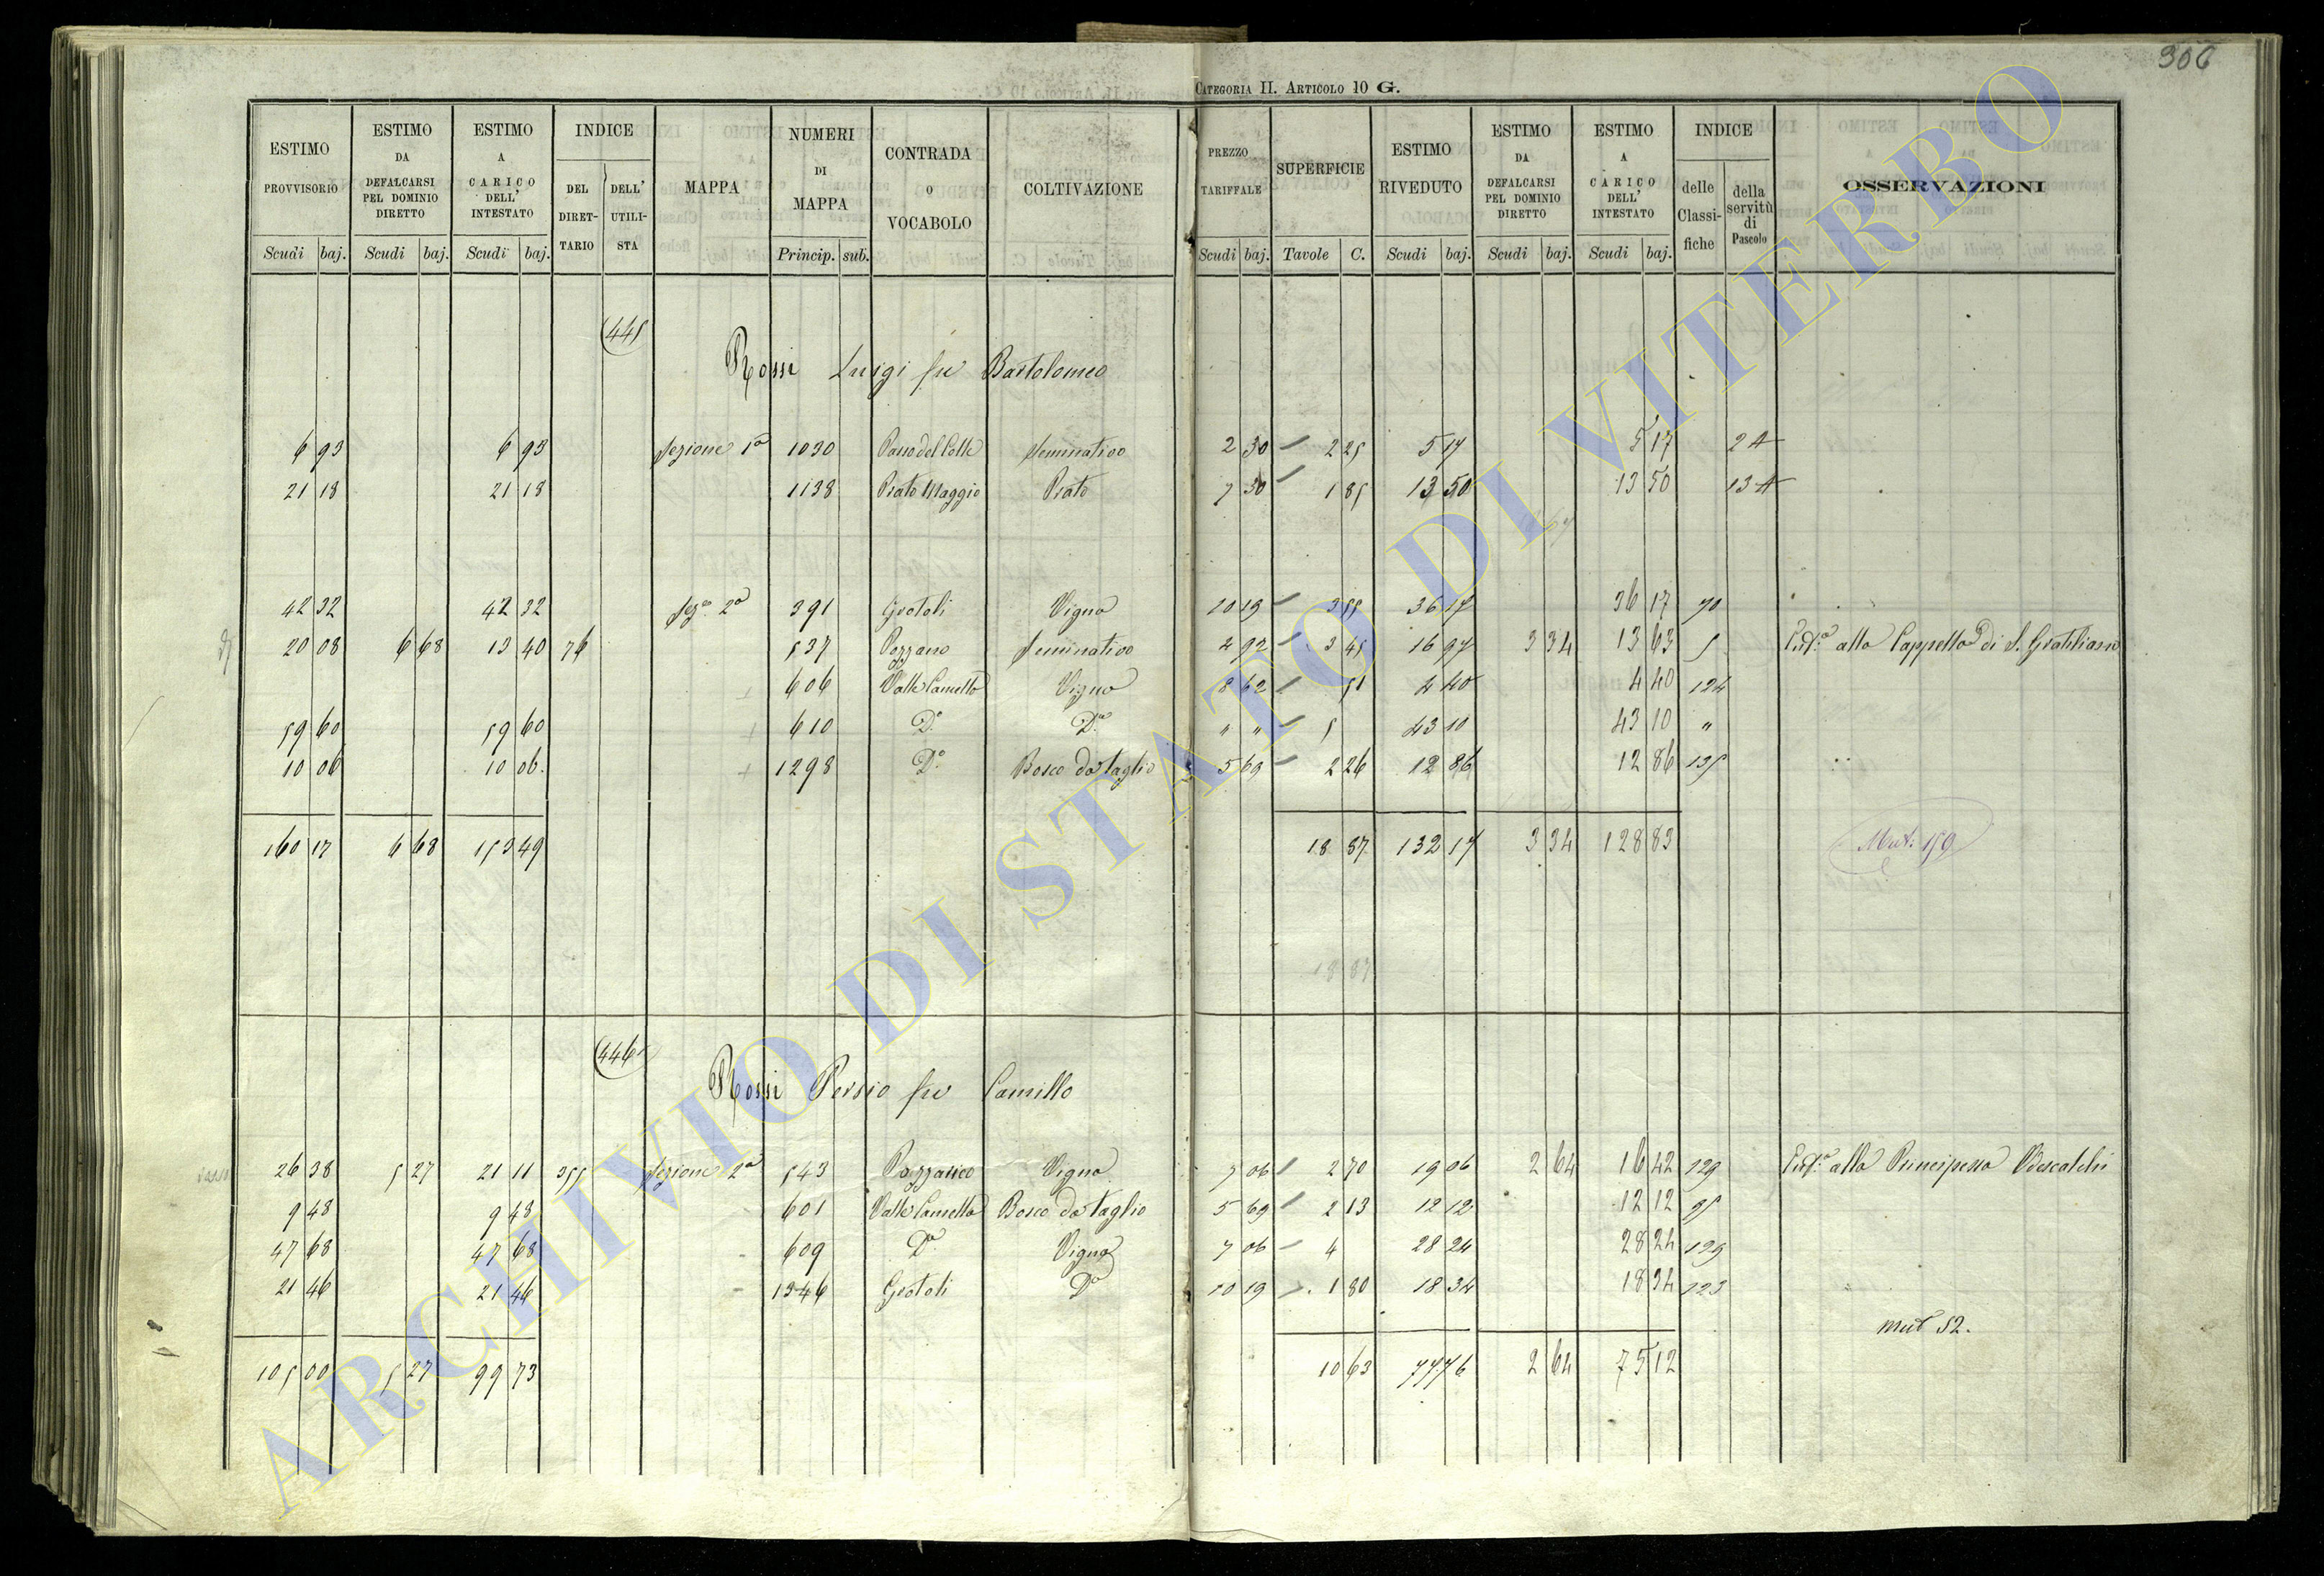 306
CATEGORIA II. ARTICOLO 10 G.
ESTIMO PROVVISORIO | ESTIMO DA DEFALCARSI PEL DOMINIO DIRETTO | ESTIMO A CARICO DELL' INTESTATO | INDICE DEL DIRET-TARIO | DELL' UTILI-STA | MAPPA | NUMERI DI MAPPA | CONTRADA O VOCABOLO | COLTIVAZIONE | PREZZO TARIFFALE | SUPERFICIE | ESTIMO RIVEDUTO | ESTIMO DA DEFALCARSI PEL DOMINIO DIRETTO | ESTIMO A CARICO DELL' INTESTATO | INDICE delle Classi-fiche | della servitù di Pascolo | OSSERVAZIONI
Scudi baj. | Scudi baj. | Scudi baj. | Princip. sub. | Scudi baj. | Tavole C. | Scudi baj. | Scudi baj. | Scudi baj.
445
Rossi Luigi fu Bartolomeo
6 93 | 6 93 | Sezione 1ª | 1030 | Seminativo | 2 30 | 2 25 | 5 17 | 5 17 | 2 A
21 18 | 21 18 | 1138 | Prato Maggio | Prato | 7 30 | 1 85 | 13 50 | 13 50 | 13 A
42 32 | 42 32 | Sezº 2ª | 391 | Grotoli | Vigna | 10 19 | 3 55 | 36 17 | 36 17 | 70
20 08 | 6 68 | 13 40 | 76 | 537 | Seminativo | 4 92 | 3 45 | 16 97 | 3 34 | 13 63 | 5 | alla Cappella di S. Gratiliano
606 | Valle Camella | Vigna | 8 62 | 51 | 4 40 | 4 40 | 124
59 60 | 59 60 | 610 | Dº | Dª | " " | 5 | 43 10 | 43 10 | "
10 06 | 10 06 | 1298 | Dº | Bosco da taglio | 5 69 | 2 26 | 12 86 | 12 86 | 135
160 17 | 6 68 | 153 49 | 18 87 | 132 17 | 3 34 | 128 83 | Mut: 159
18 87
446
Rossi Persio fu Camillo
26 38 | 5 27 | 21 11 | 355 | Sezione 2ª | 543 | Vigna | 7 06 | 2 70 | 19 06 | 2 64 | 16 42 | 129 | alla Principessa Odescalchi
9 48 | 9 48 | 601 | Valle Camella | Bosco da taglio | 5 69 | 2 13 | 12 12 | 12 12 | 95
47 68 | 47 68 | 609 | Dª | Vigna | 7 06 | 4 | 28 24 | 28 24 | 129
21 46 | 21 46 | 1346 | Grotoli | Dª | 10 19 | 1 80 | 18 34 | 18 34 | 123
mut 52.
105 00 | 5 27 | 99 73 | 10 63 | 77 76 | 2 64 | 75 12
ARCHIVIO DI STATO DI VITERBO